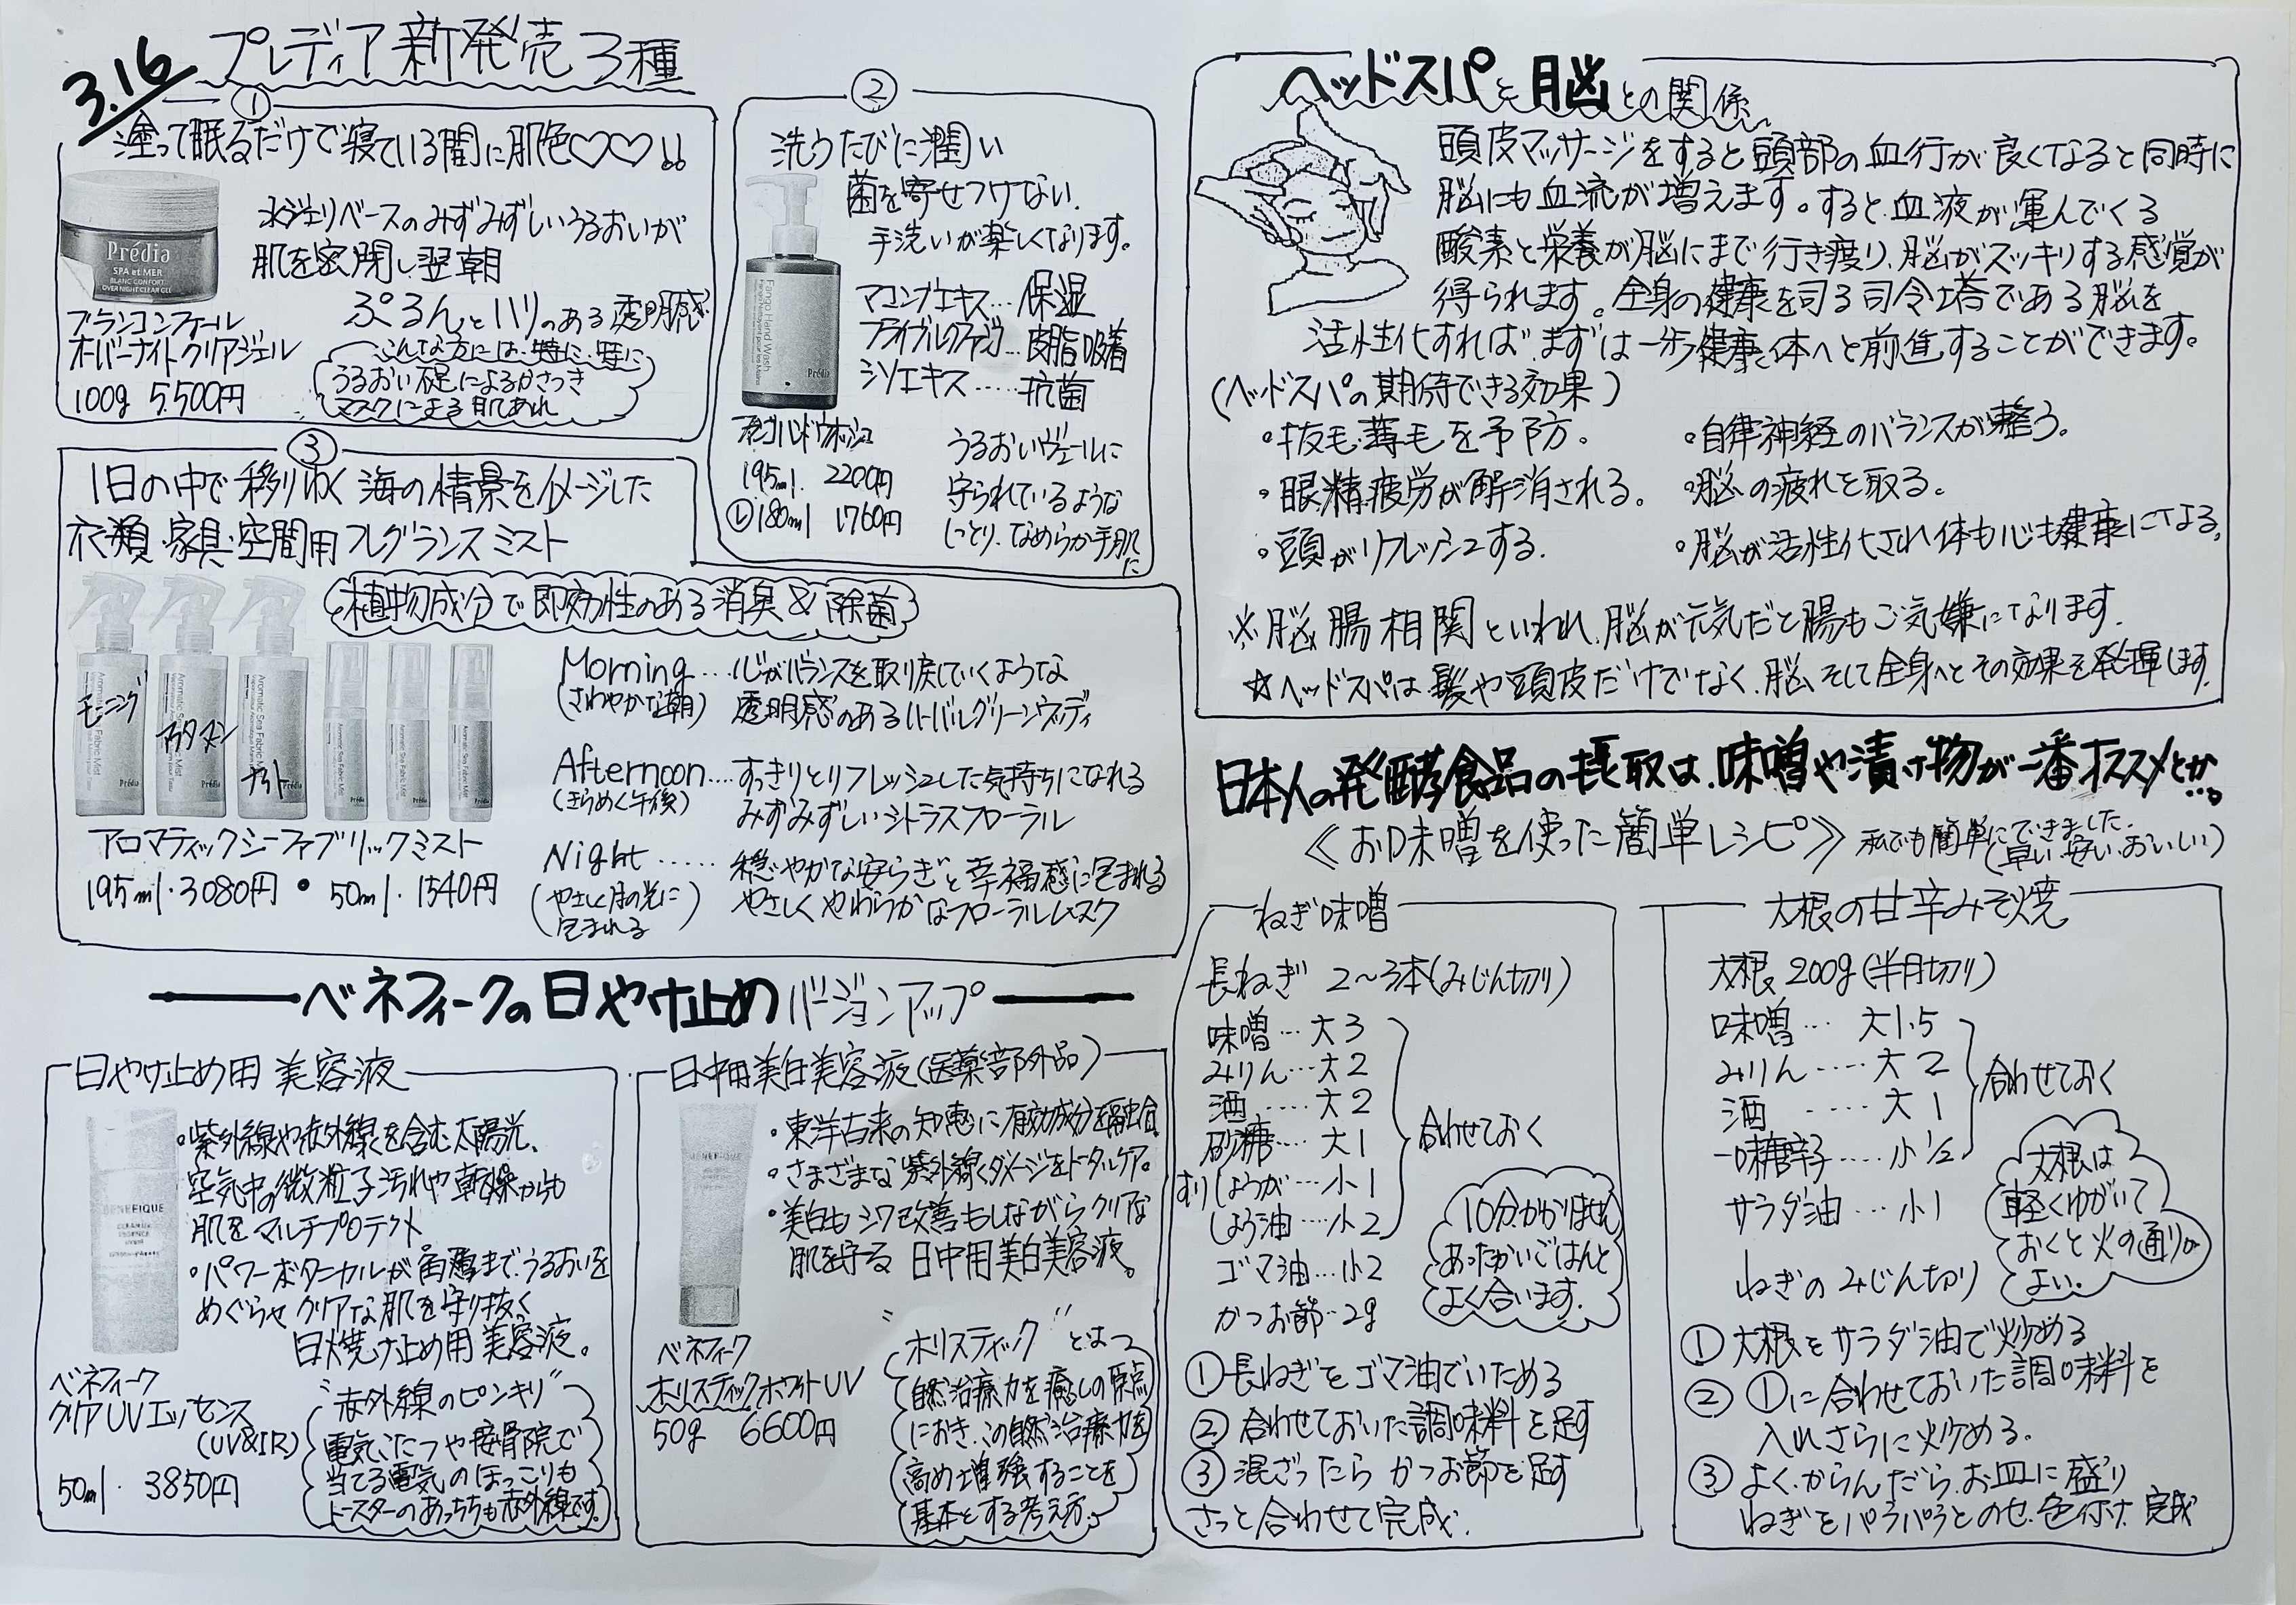 3.16 プレディア新発売3種
①
塗って眠るだけで寝ている間に肌色♡♡!!
Prédia
SPA et MER
BLANC CONFORT
OVER NIGHT CLEAR GEL
水ジェリベースのみずみずしいうるおいが
肌を密閉し翌朝
ぷるんとハリのある透明感
ブランコンフォール
オーバーナイトクリアジェル
100g 5,500円
こんな方には特に、更に
うるおい不足によるかさつき
マスクによる肌あれ
②
洗うたびに潤い
菌を寄せつけない.
手洗いが楽しくなります。
Fango Hand Wash
Prédia
マコンブエキス…保湿
ファンゴ…皮脂吸着
シソエキス……抗菌
ファンゴハンドウオッシュ
195ml. 2200円
㋹180ml 1760円
うるおいヴェールに
守られているような
しっとり、なめらか手肌
に
③
1日の中で移りゆく海の情景をイメージした
衣類・家具・空間用フレグランスミスト
植物成分で即効性のある消臭&除菌
モーニング
アフタヌーン
ナイト
Aromatic Sea Fabric Mist
Prédia
アロマティックシーファブリックミスト
195ml・3080円 • 50ml・1540円
Morning…心がバランスを取り戻していくような
(さわやかな朝) 透明感のあるハーバルグリーンウッディ
Afternoon….すっきりとリフレッシュした気持ちになれる
(きらめく午後) みずみずしいシトラスフローラル
Night …… 穏やかな安らぎと幸福感に包まれる
(やさしく月の光に やさしくやわらかなフローラルムスク
包まれる)
ベネフィークの日やけ止めバージョンアップ
日やけ止め用 美容液
BENEFIQUE
・紫外線や赤外線を含む太陽光、
空気中の微粒子汚れや乾燥からも
肌をマルチプロテクト
・パワーボタニカルが角層まで、うるおいを
めぐらせクリアな肌を守り抜く
日焼け止め用美容液。
ベネフィーク
クリアUVエッセンス
(UV&IR)
50ml・ 3850円
"赤外線のピンキリ"
電気こたつや接骨院で
当てる電気のほっこりも
トースターのあっちちも赤外線です。
日中用美白美容液(医薬部外品)
BENEFIQUE
・東洋古来の知恵に有効成分を融合
・さまざまな紫外線ダメージをトータルケア。
・美白もシワ改善もしながらクリアな
肌を守る 日中用美白美容液。
ベネフィーク
ホリスティックホワイトUV
50g 6600円
"ホリスティック"とは
自然治療力を癒しの原点
におき、この自然治療力を
高め増強することを
基本とする考え方。
ヘッドスパと脳との関係
頭皮マッサージをすると頭部の血行が良くなると同時に
脳にも血流が増えます。すると血液が運んでくる
酸素と栄養が脳にまで行き渡り、脳がスッキリする感覚が
得られます。全身の健康を司る司令塔である脳を
活性化すれば、まずは一歩健康な体へと前進することができます。
(ヘッドスパの期待できる効果)
・抜毛・薄毛を予防。
・眼精疲労が解消される。
・頭がリフレッシュする.
・自律神経のバランスが整う。
・脳の疲れを取る。
・脳が活性化され体も心も健康になる。
※脳腸相関といわれ、脳が元気だと腸もご気嫌になります.
☆ヘッドスパは髪や頭皮だけでなく、脳、そして全身へとその効果を発揮します.
日本人の発酵食品の摂取は、味噌や漬け物が一番オススメとか…。
《お味噌を使った簡単レシピ》私でも簡単にできました.
(早い・安い・おいしい)
ねぎ味噌
長ねぎ 2〜3本(みじん切り)
味噌…大3
みりん…大2
酒 ….大2
砂糖….大1
すりしょうが…小1
しょう油…小2
合わせておく
ゴマ油…小2
かつお節…2g
10分かかりません
あったかいごはんと
よく合います.
①長ねぎをゴマ油でいためる
②合わせておいた調味料を足す
③混ざったら かつお節を足す
さっと合わせて完成.
大根の甘辛みそ焼
大根200g(半月切り)
味噌… 大1.5
みりん….大2
酒 ….大1
一味唐辛子….小½
合わせておく
サラダ油…小1
ねぎのみじん切り
大根は
軽くゆがいて
おくと火の通りが
よい.
①大根をサラダ油で炒める
②①に合わせておいた調味料を
入れさらに炒める.
③よくからんだら、お皿に盛り
ねぎをパラパラとのせ、色付け 完成